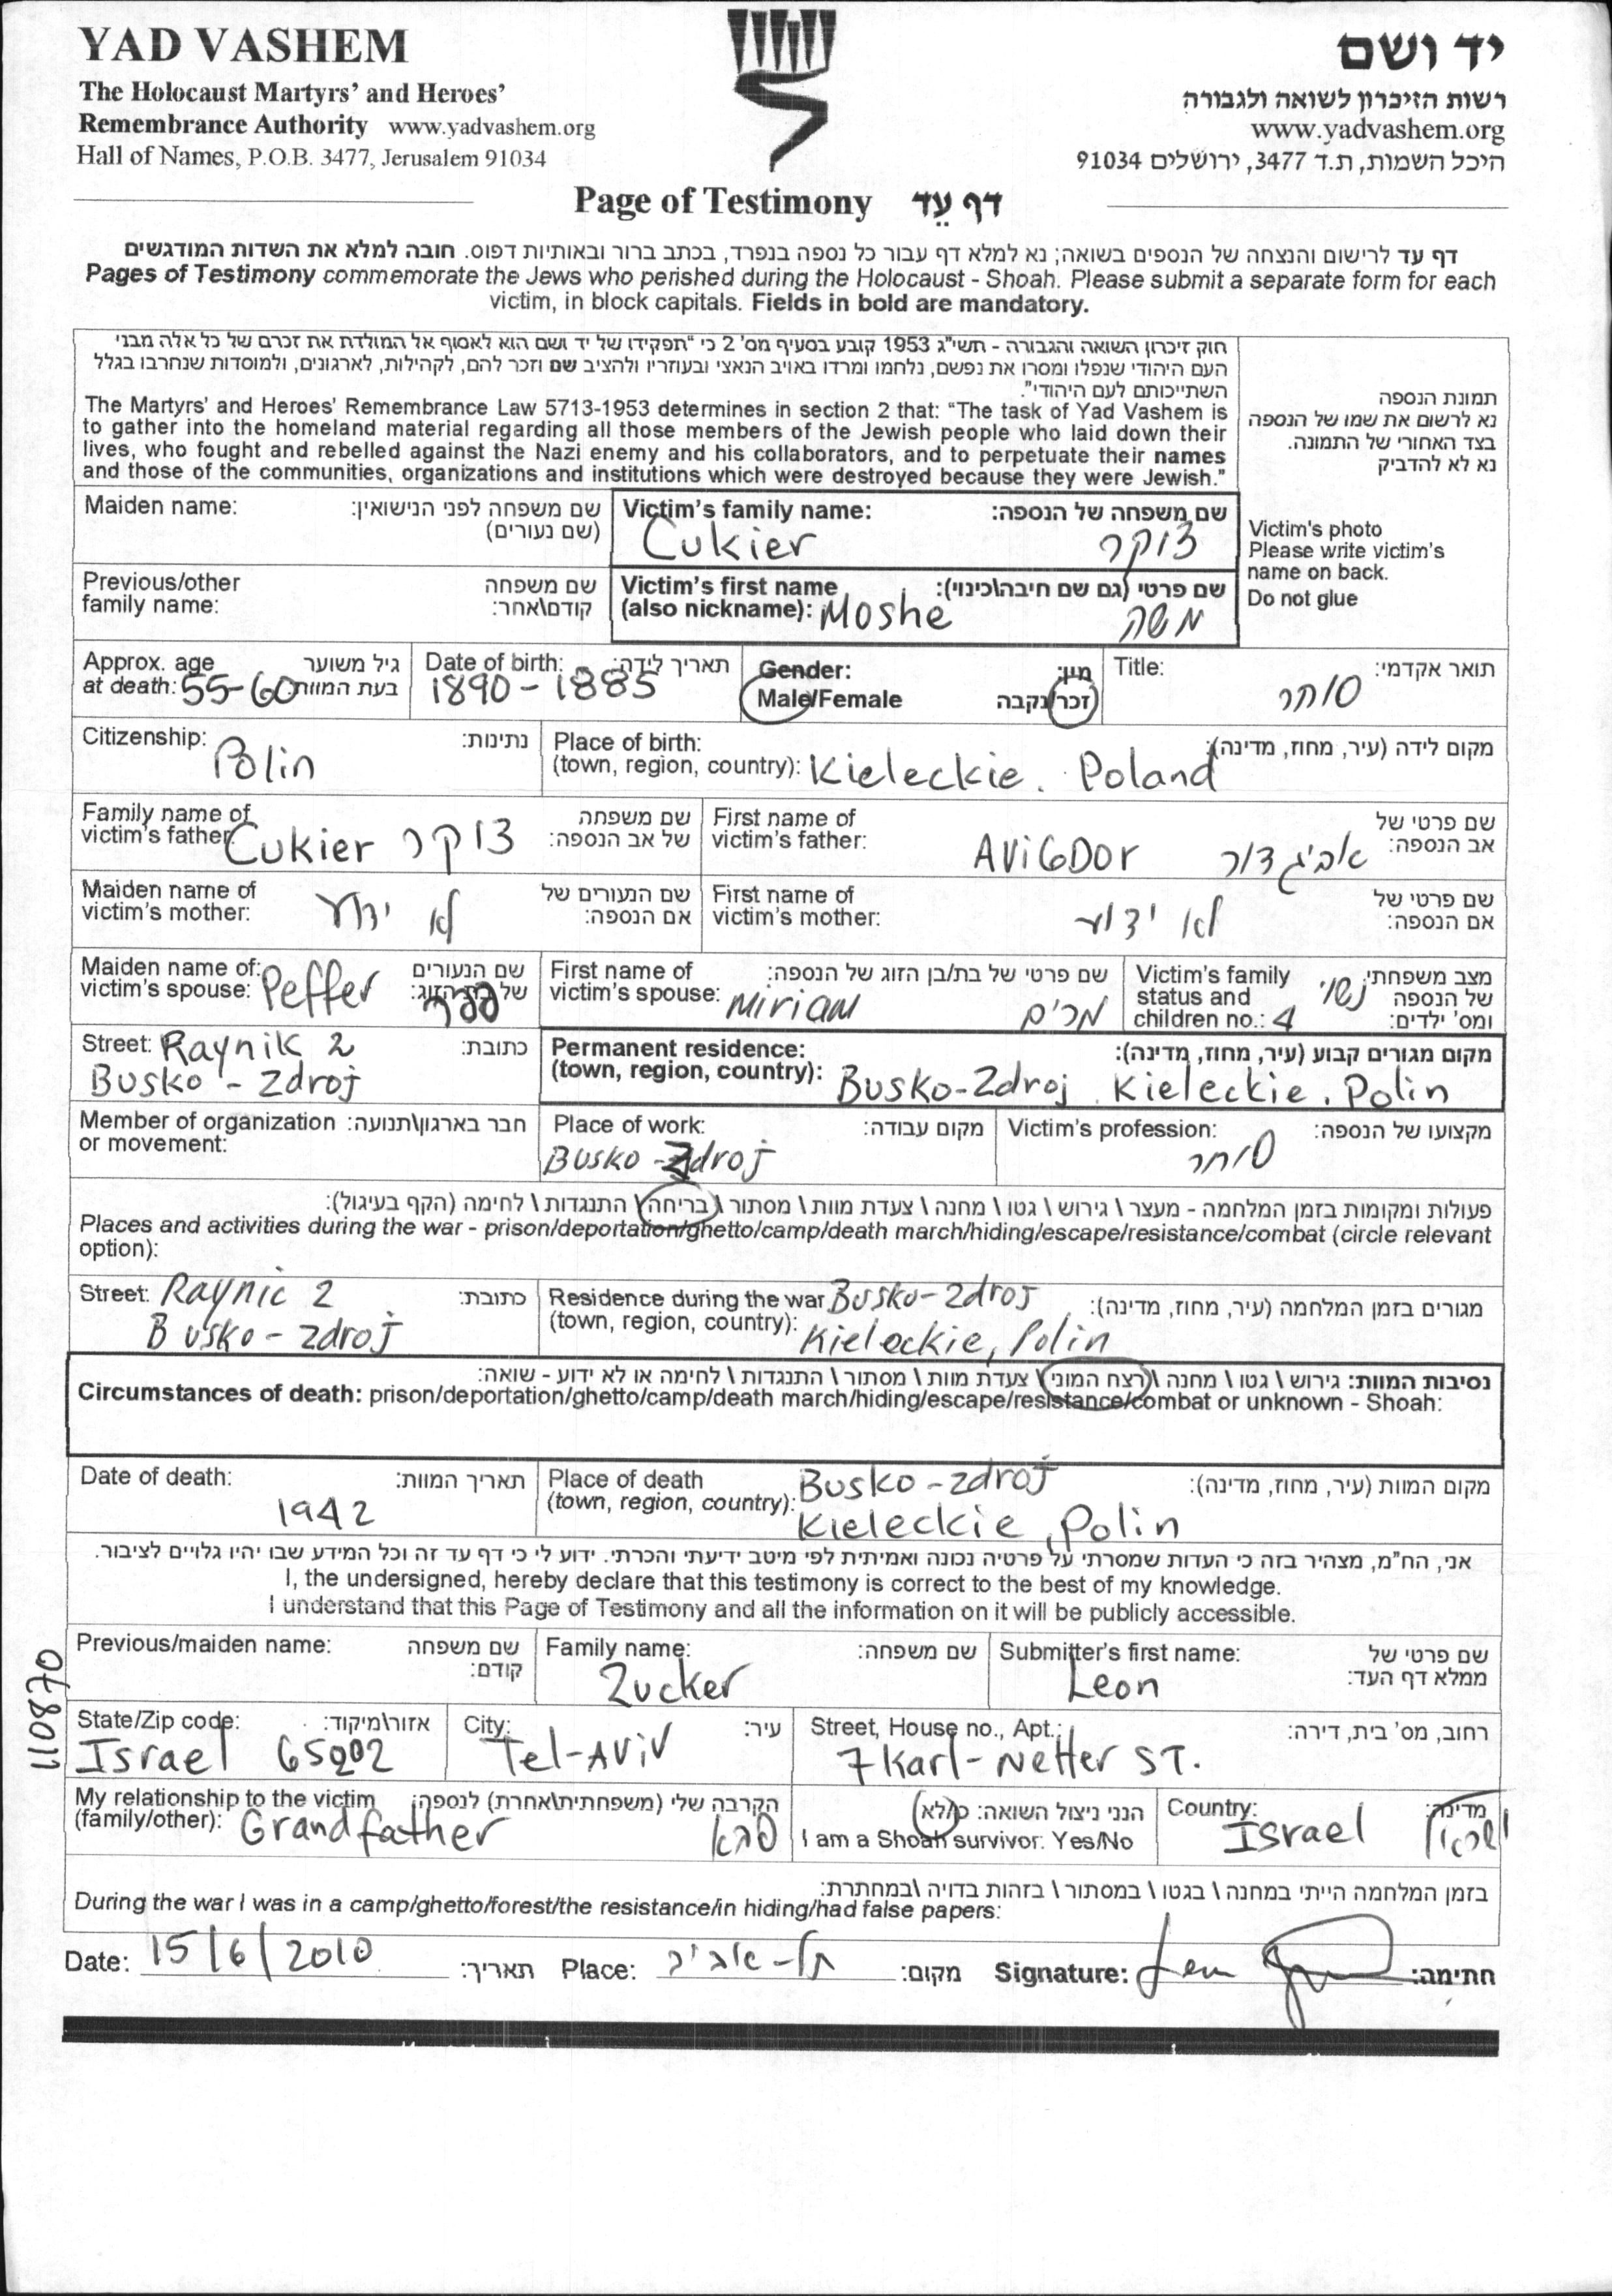 YAD VASHEM
The Holocaust Martyrs' and Heroes'
Remembrance Authority www.yadvashem.org
Hall of Names, P.O.B. 3477, Jerusalem 91034
יד ושם
רשות הזיכרון לשואה ולגבורה
www.yadvashem.org
היכל השמות, ת.ד 3477, ירושלים 91034
Page of Testimony דף עֵד
דף עד לרישום והנצחה של הנספים בשואה; נא למלא דף עבור כל נספה בנפרד, בכתב ברור ובאותיות דפוס. חובה למלא את השדות המודגשים
Pages of Testimony commemorate the Jews who perished during the Holocaust - Shoah. Please submit a separate form for each
victim, in block capitals. Fields in bold are mandatory.
חוק זיכרון השואה והגבורה - תשי"ג 1953 קובע בסעיף מס' 2 כי "תפקידו של יד ושם הוא לאסוף אל המולדת את זכרם של כל אלה מבני
העם היהודי שנפלו ומסרו את נפשם, נלחמו ומרדו באויב הנאצי ובעוזריו ולהציב שם וזכר להם, לקהילות, לארגונים, ולמוסדות שנחרבו בגלל
השתייכותם לעם היהודי".
The Martyrs' and Heroes' Remembrance Law 5713-1953 determines in section 2 that: "The task of Yad Vashem is
to gather into the homeland material regarding all those members of the Jewish people who laid down their
lives, who fought and rebelled against the Nazi enemy and his collaborators, and to perpetuate their names
and those of the communities, organizations and institutions which were destroyed because they were Jewish."
תמונת הנספה
נא לרשום את שמו של הנספה
בצד האחורי של התמונה.
נא לא להדביק
Victim's photo
Please write victim's
name on back.
Do not glue
Maiden name: שם משפחה לפני הנישואין:
(שם נעורים)
Victim's family name: שם משפחה של הנספה:
Cukier צוקר
Previous/other שם משפחה
family name: קודם\אחר:
Victim's first name שם פרטי (גם שם חיבה\כינוי):
(also nickname): Moshe משה
Approx. age גיל משוער
at death: 55-60 בעת המוות:
Date of birth: תאריך לידה:
1890 - 1885
Gender: מין:
Male/Female זכר/נקבה
Title: תואר אקדמי:
סוחר
Citizenship: נתינות:
Polin
Place of birth: מקום לידה (עיר, מחוז, מדינה):
(town, region, country): Kieleckie. Poland
Family name of שם משפחה
victim's father: Cukier צוקר של אב הנספה:
First name of שם פרטי של
victim's father: AViGDOR אביגדור אב הנספה:
Maiden name of שם הנעורים של
victim's mother: לא ידוע אם הנספה:
First name of שם פרטי של
victim's mother: לא ידוע אם הנספה:
Maiden name of שם הנעורים
victim's spouse: Peffer פפר של בת הזוג:
First name of שם פרטי של בת/בן הזוג של הנספה:
victim's spouse: Miriam מרים
Victim's family מצב משפחתי
status and נשוי של הנספה
children no.: 4 ומס' ילדים:
Street: Raynik 2 כתובת:
Busko - Zdroj
Permanent residence: מקום מגורים קבוע (עיר, מחוז, מדינה):
(town, region, country): Busko-Zdroj. Kieleckie. Polin
Member of organization חבר בארגון\תנועה:
or movement:
Place of work: מקום עבודה:
Busko - Zdroj
Victim's profession: מקצועו של הנספה:
סוחר
פעולות ומקומות בזמן המלחמה - מעצר \ גירוש \ גטו \ מחנה \ צעדת מוות \ מסתור \ בריחה \ התנגדות \ לחימה (הקף בעיגול):
Places and activities during the war - prison/deportation/ghetto/camp/death march/hiding/escape/resistance/combat (circle relevant
option):
Street: Raynic 2 כתובת:
Busko - Zdroj
Residence during the war Busko-Zdroj מגורים בזמן המלחמה (עיר, מחוז, מדינה):
(town, region, country): Kieleckie, Polin
נסיבות המוות: גירוש \ גטו \ מחנה \ רצח המוני \ צעדת מוות \ מסתור \ התנגדות \ לחימה או לא ידוע - שואה:
Circumstances of death: prison/deportation/ghetto/camp/death march/hiding/escape/resistance/combat or unknown - Shoah:
Date of death: תאריך המוות:
1942
Place of death Busko - Zdroj מקום המוות (עיר, מחוז, מדינה):
(town, region, country): Kieleckie, Polin
אני, הח"מ, מצהיר בזה כי העדות שמסרתי על פרטיה נכונה ואמיתית לפי מיטב ידיעתי והכרתי. ידוע לי כי דף עד זה וכל המידע שבו יהיו גלויים לציבור.
I, the undersigned, hereby declare that this testimony is correct to the best of my knowledge.
I understand that this Page of Testimony and all the information on it will be publicly accessible.
Previous/maiden name: שם משפחה
קודם:
Family name: שם משפחה:
Zucker
Submitter's first name: שם פרטי של
Leon ממלא דף העד:
110870
State/Zip code: אזור\מיקוד:
Israel 65202
City: עיר:
Tel-AViV
Street, House no., Apt.: רחוב, מס' בית, דירה:
7 Karl-Netter ST.
My relationship to the victim הקרבה שלי (משפחתית\אחרת) לנספה:
(family/other): Grandfather סבא
הנני ניצול השואה: כן/לא
I am a Shoah survivor: Yes/No
Country: מדינה:
Israel ישראל
בזמן המלחמה הייתי במחנה \ בגטו \ במסתור \ בזהות בדויה \במחתרת:
During the war I was in a camp/ghetto/forest/the resistance/in hiding/had false papers:
Date: 15/6/2010 תאריך: Place: תל-אביב מקום: Signature: חתימה: